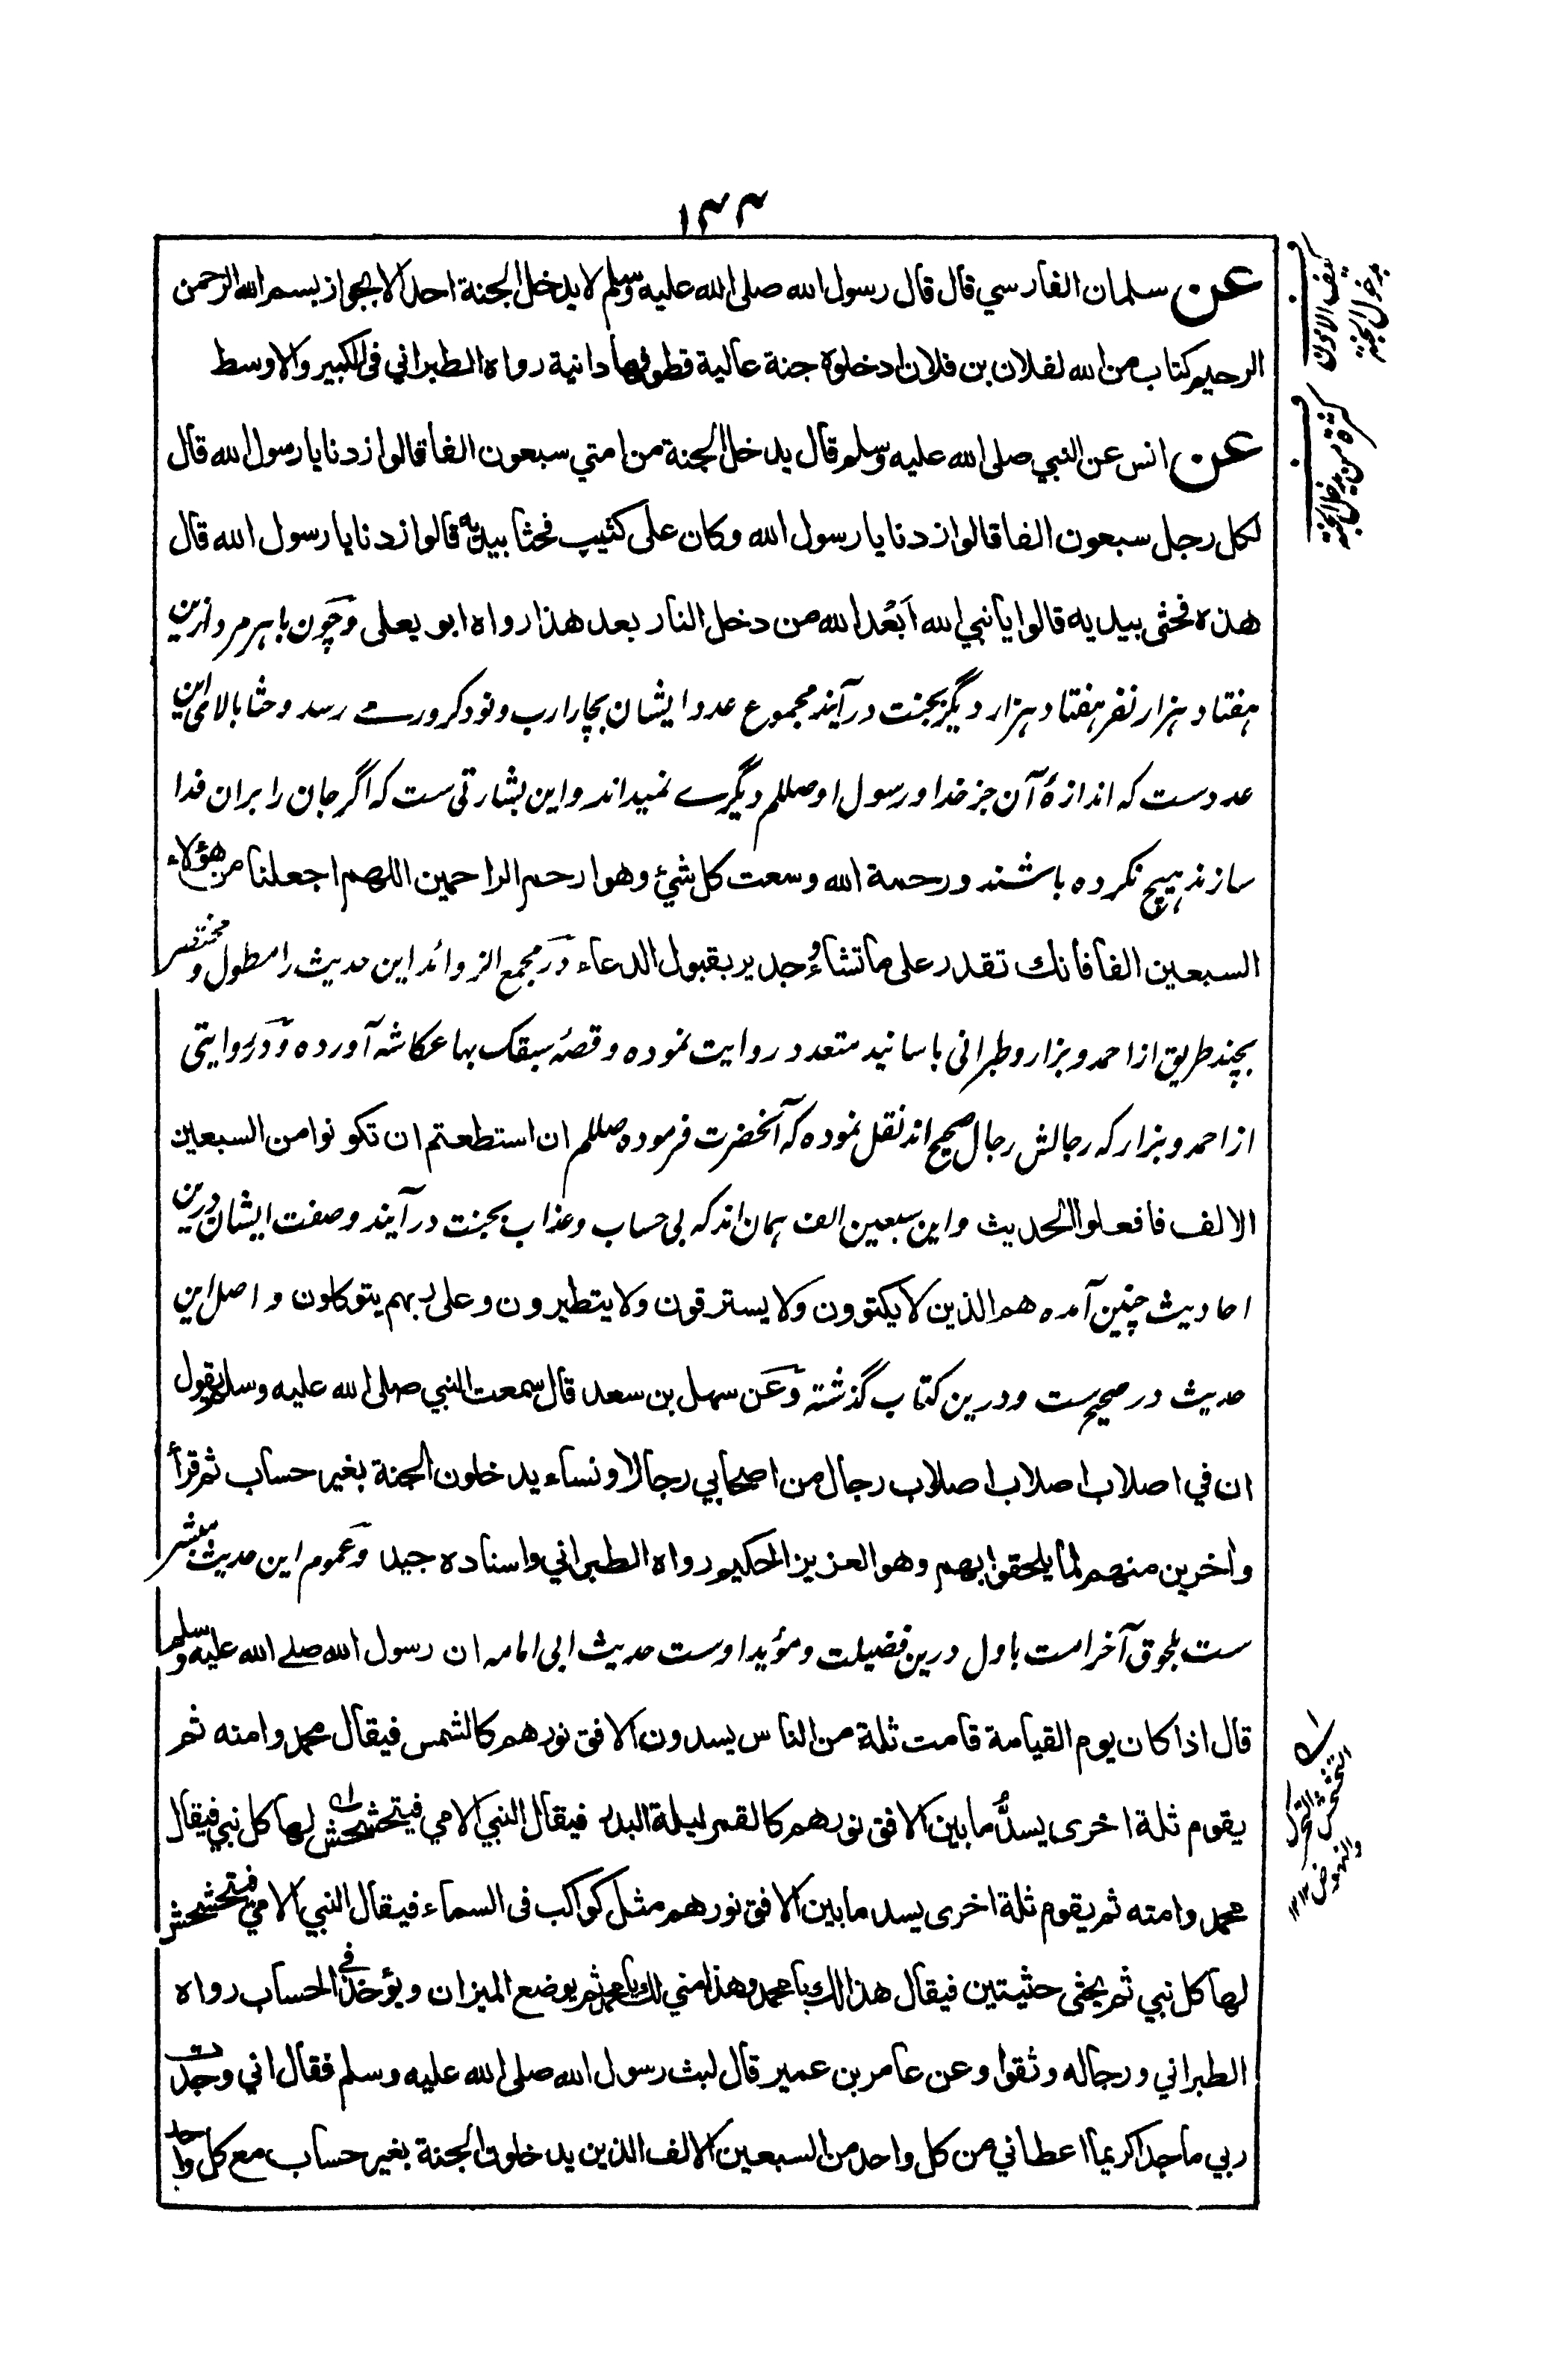 ۱۳۳
عن سلمان الفارسي قال قال رسول الله صلى الله عليه وسلم لا يدخل الجنة احد الا بجواز بسم الله الرحمن
الرحيم كتاب من الله لفلان بن فلان ادخلوه جنة عالية قطوفها دانية رواه الطبراني فى الكبير والاوسط
عن انس عن النبي صلى الله عليه وسلم قال يدخل الجنة من امتي سبعون الفا قالوا زدنا يا رسول الله قال
لكل رجل سبعون الفا قالوا زدنا يا رسول الله وكان على كثيب فحثا بيديه قالوا زدنا يا رسول الله قال
هذه فحثى بيديه قالوا يا نبي الله اَبْعَد الله من دخل النار بعد هذا رواه ابو يعلى وچون با هر مرد ازين
هفتاد هزار نفر هفتاد هزار ديگر بجنت درآيند مجموع عدد ايشان بچار ارب و نود كرور مے رسد و حثا بالاى اين
عددست كه اندازۀ آن جز خدا و رسول او صللم ديگرے نميداند و اين بشارتى ست كه اگر جان را بران فدا
سازند هيچ نكرده باشند ورحمة الله وسعت كل شيء وهو ارحم الراحمين اللهم اجعلنا من هؤلاء
السبعين الفا فانك تقدر على ما تشاء وجدير بقبول الدعاء در مجمع الزوائد اين حديث را مطول و مختصر
بچند طريق از احمد و بزار و طبرانى باسانيد متعدد روايت نموده و قصۀ سبقك بها عكاشه آورده و در روايتى
از احمد و بزار كه رجالش رجال صحيح اند نقل نموده كه آنحضرت فرموده صللم ان استطعتم ان تكونوا من السبعين
الالف فافعلوا الحديث و اين سبعين الف همان اند كه بى حساب و عذاب بجنت درآيند و صفت ايشان درين
احاديث چنين آمده هم الذين لا يكتوون ولا يسترقون ولا يتطيرون وعلى ربهم يتوكلون و اصل اين
حديث در صحيح ست و درين كتاب گذشته وعن سهل بن سعد قال سمعت النبي صلى الله عليه وسلم يقول
ان في اصلاب اصلاب اصلاب رجال من اصحابي رجالا ونساء يدخلون الجنة بغير حساب ثم قرأ
وآخرين منهم لما يلحقوا بهم وهو العزيز الحكيم رواه الطبراني واسناده جيد و عموم اين حديث مبشر
ست بلحوق آخر امت باول درين فضيلت و مؤيد اوست حديث ابى امامه ان رسول الله صلے الله عليه وسلم
قال اذا كان يوم القيامة قامت ثلة من الناس يسدون الافق نورهم كالشمس فيقال محمد وامته ثم
يقوم ثلة اخرى يسدُّ ما بين الافق نورهم كالقمر ليلة البدر فيقال النبي الامي فيتحشحش لها كل نبي فيقال
محمد وامته ثم يقوم ثلة اخرى يسد ما بين الافق نورهم مثل كواكب فى السماء فيقال النبي الامي فيتحشحش
لها كل نبي ثم يحثى حثيتين فيقال هذا لك يا محمد وهذا مني لك يا محمد ثم يوضع الميزان ويؤخذ فى الحساب رواه
الطبراني ورجاله وثقوا وعن عامر بن عمير قال لبث رسول الله صلى الله عليه وسلم فقال اني وجدت
ربي ماجدا كريما اعطاني من كل واحد من السبعين الالف الذين يدخلون الجنة بغير حساب مع كل واحد
كثرة من يدخل الجنة
التحشحش التحرك
والنهوض ۱۲